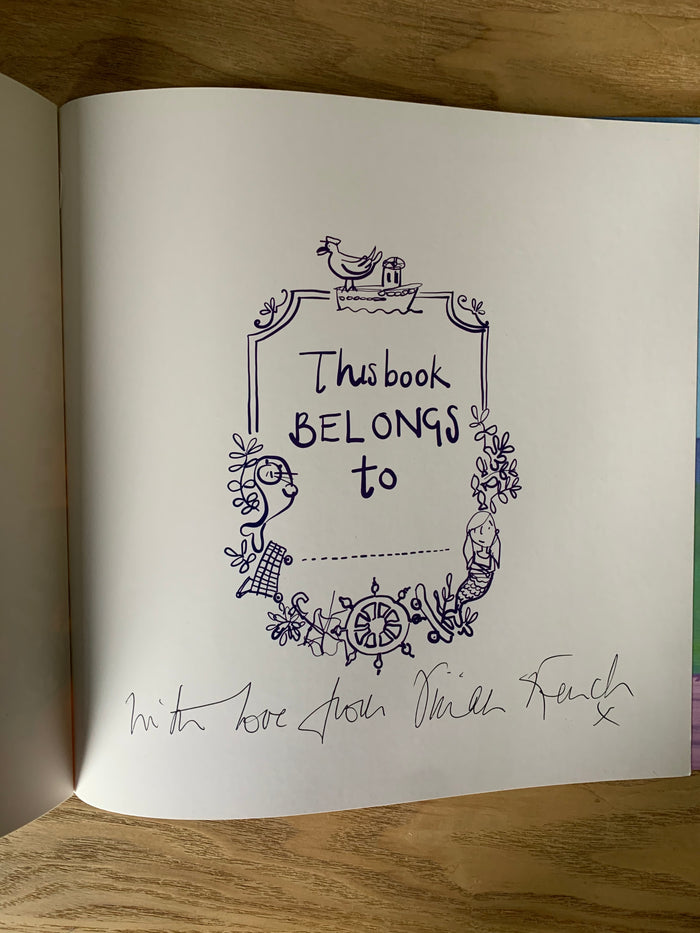 This book
BELONGS
to
with love from Vivian French x